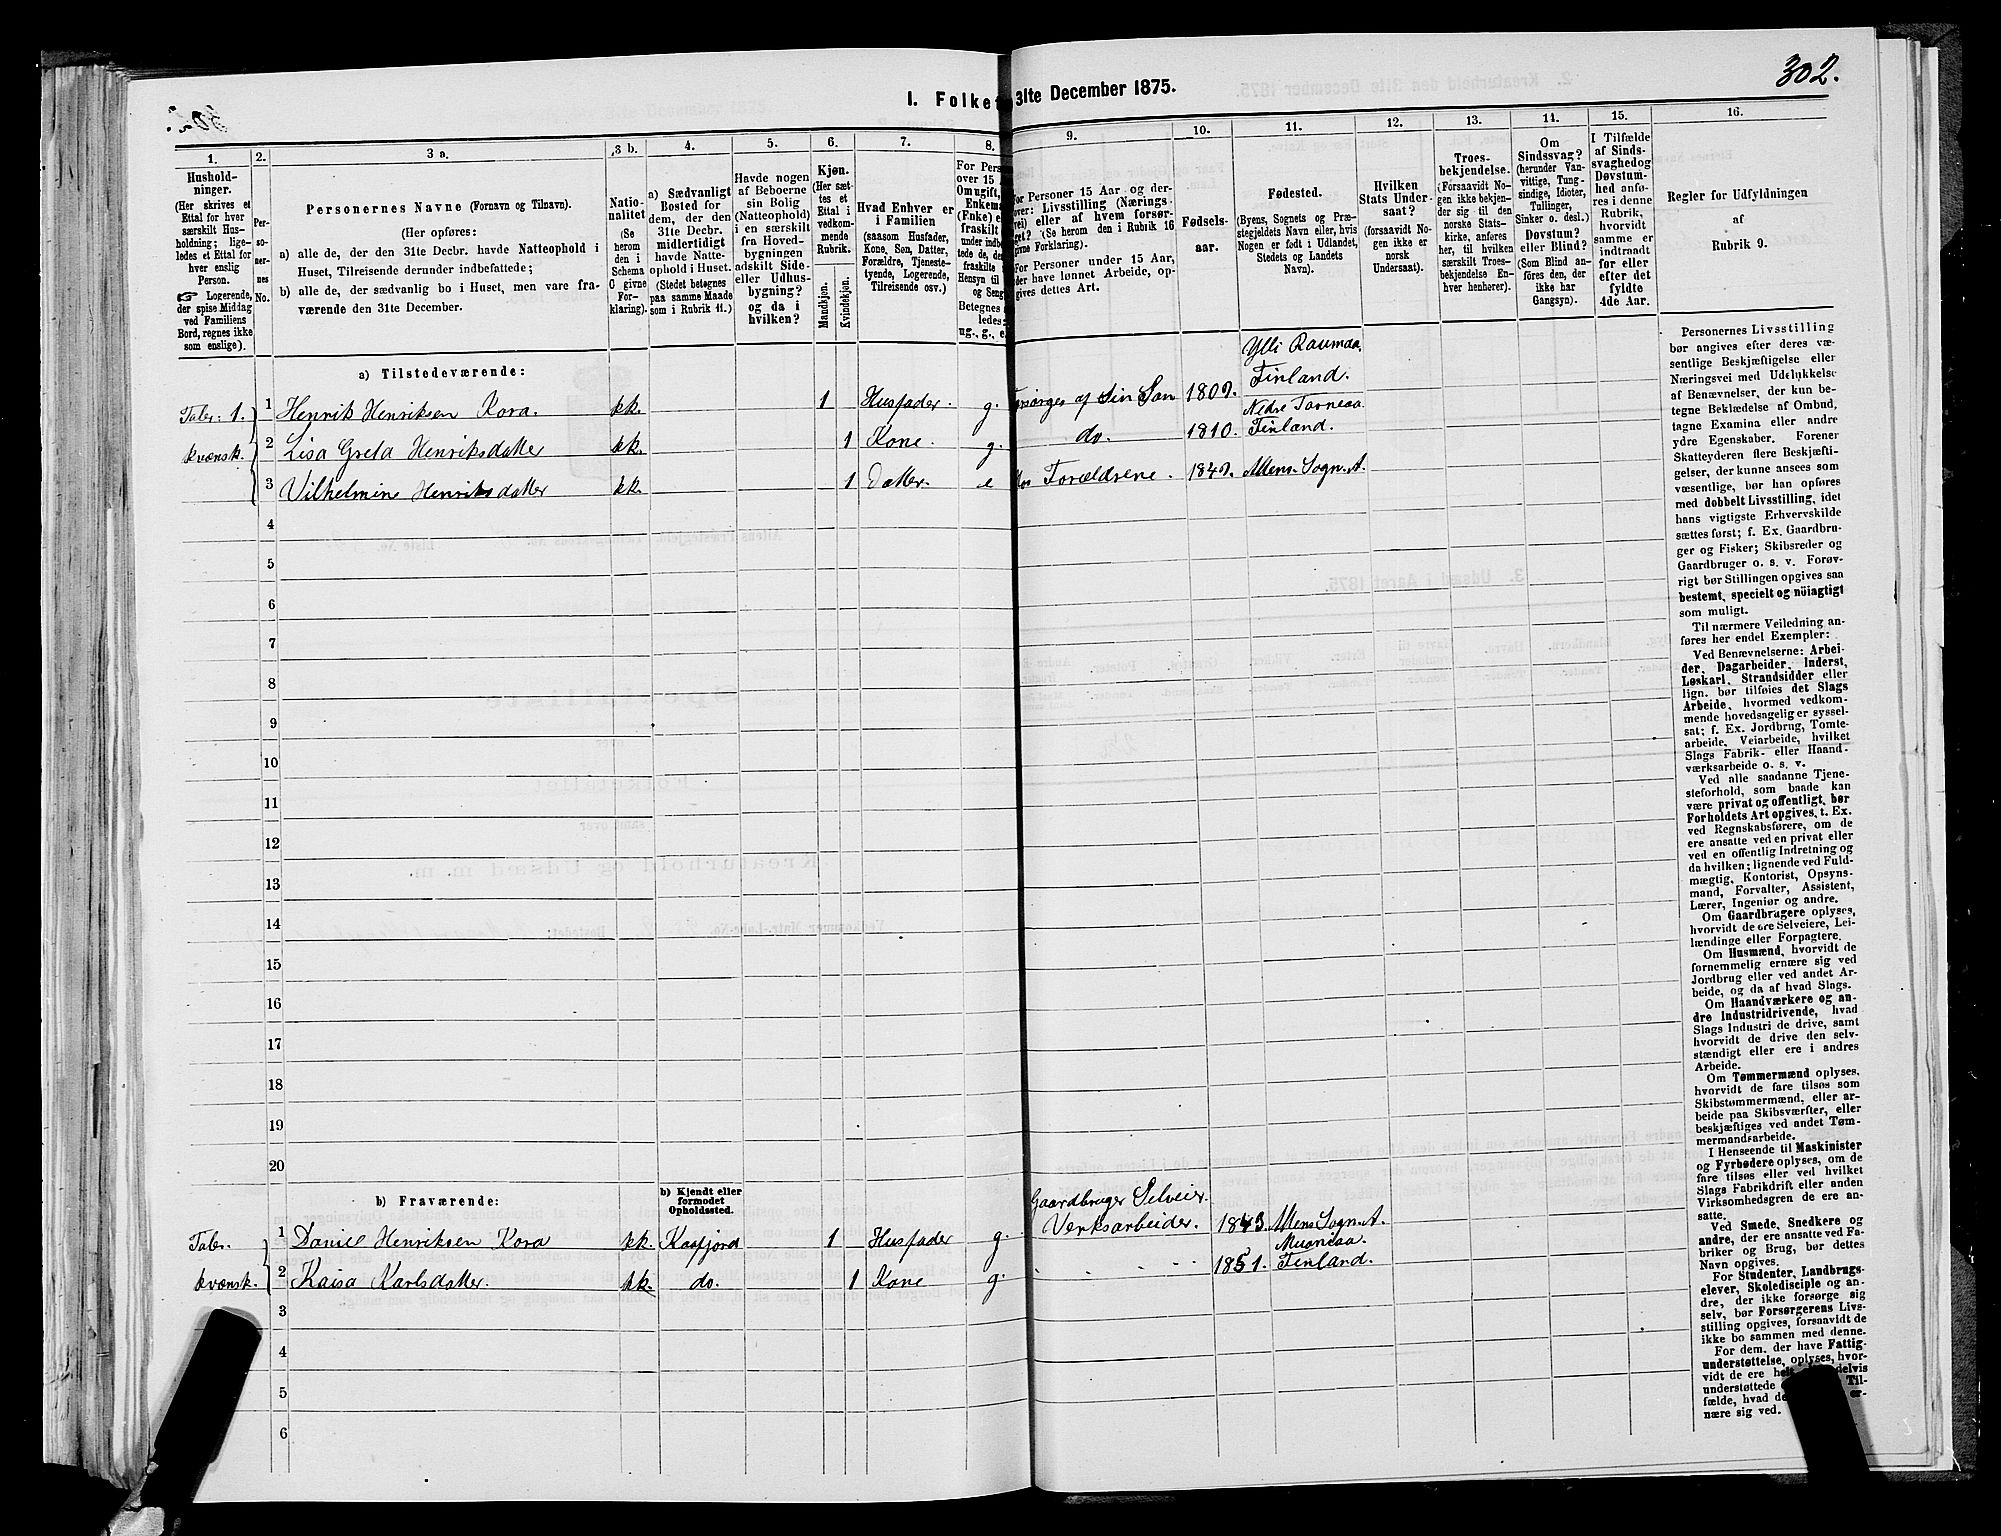 302.
I. Folket
31te December 1875.
1.
2.
3 a.
3 b.
4.
5.
6.
7.
8.
9.
10.
11.
12.
13.
14.
15.
16.
Hushold-
ninger.
(Her skrives et
Ettal for hver
særskilt Hus-
holdning; lige-
ledes et Ettal for
hver enslig
Person.
☞ Logerende,
der spise Middag
ved Familiens
Bord, regnes ikke
som enslige).
Per-
so-
ner-
nes
No.
Personernes Navne (Fornavn og Tilnavn).
(Her opføres:
a) alle de, der den 31te Decbr. havde Natteophold i
Huset, Tilreisende derunder indbefattede;
b) alle de, der sædvanlig bo i Huset, men vare fra-
værende den 31te December.
Natio-
nalitet
(Se
herom
den i
Schema
C givne
For-
klaring).
a) Sædvanligt
Bosted for
dem, der den
31te Decbr.
midlertidigt
havde Natte-
ophold i Huset.
(Stedet betegnes
paa samme Maade
som i Rubrik 11.)
Havde nogen
af Beboerne
sin Bolig
(Natteophold)
i en særskilt
fra Hoved-
bygningen
adskilt Side-
eller Udhus-
bygning?
og da i
hvilken?
Kjøn.
(Her sæt-
tes et
Ettal i
vedkom-
mende
Rubrik.
Mandkjøn.
Kvindekjøn.
Hvad Enhver er
i Familien
(saasom Husfader,
Kone, Søn, Datter,
Forældre, Tjeneste-
tyende, Logerende,
Tilreisende osv.)
For Pers
over 15
Om ugift,
Enkema
(Fnke) e
fraskilt
under indbe
tede de,
fraskilte
Hensyn t
og Seng
Betegnes
ledes:
ug., g., e.
For Personer 15 Aar og der-
over: Livsstilling (Nærings-
vei) eller af hvem forsør-
get? (Se herom den i Rubrik 16
givne Forklaring).
For Personer under 15 Aar,
der have lønnet Arbeide, op-
gives dettes Art.
Fødsels-
aar.
Fødested.
(Byens, Sognets og Præ-
stegjeldets Navn eller, hvis
Nogen er født i Udlandet,
Stedets og Landets
Navn).
Hvilken
Stats Under-
saat?
(forsaavidt No-
gen ikke er
norsk
Undersaat).
Troes-
bekjendelse.
(Forsaavidt No-
gen ikke bekjen-
der sig til den
norske Stats-
kirke, anføres
her, til hvilken
særskilt Troes-
bekjendelse En-
hver henhører).
Om
Sindssvag?
(herunder Van-
vittige, Tung-
sindige, Idioter,
Tullinger,
Sinker o. desl.)
Døvstum?
eller Blind?
(Som Blind an-
føres den, der
ikke har
Gangsyn).
I Tilfælde
af Sinds-
svaghedog
Døvstum-
hed anfø-
res i denne
Rubrik,
hvorvidt
samme er
indtraadt
før eller
efter det
fyldte
4de Aar.
Regler for Udfyldningen
af
Rubrik 9.
a) Tilstedeværende:
Ylli Raumaa.
Finland.
Taler: 1. 1 Henrik Henriksen Kora. kk. 1 Husfader. g. Forsørges af Sin Søn 1809.
Nedre Torneaa
kvænsk. 2 Lisa Greta Henriksdatter kk. 1 Kone. g. do. 1810. Finland.
3 Vilhelmin Henriksdatter kk. 1 Datter. e Hos Forældrene. 1849. Altens Sogn. A.
4
5
6
7
8
9
10
11
12
13
14
15
16
17
18
19
20
b) Fraværende:
b) Kjendt eller
formodet
Opholdssted.
Gaardbruger Selveier.
Taler. 1 Daniel Henriksen Kora kk. Kaafjord 1 Husfader g. Verksarbeider. 1843. Altens Sogn. A.
Muoneaa.
kvænsk. 2 Kaisa Karlsdatter. kk. do. 1 Kone g. 1851. Finland.
3
4
5
6
Personernes Livsstilling
bør angives efter deres væ-
sentlige Beskjæftigelse eller
Næringsvei med Udelukkelse
af Benævnelser, der kun be-
tegne Beklædelse af Ombud,
tagne Examina eller andre
ydre Egenskaber. Forener
Skatteyderen flere Beskjæfti-
gelser, der kunne ansees som
væsentlige, bør han opføres
med dobbelt Livsstilling, idet
hans vigtigste Erhvervskilde
sættes først; f. Ex. Gaardbru-
ger og Fisker; Skibsreder og
Gaardbruger o. s. v. Forøv-
rigt bør Stillingen opgives saa
bestemt, specielt og nøiagtigt
som muligt.
Til nærmere Veiledning an-
føres her endel Exempler:
Ved Benævnelserne: Arbei-
der, Dagarbeider, Inderst,
Løskarl, Strandsidder eller
lign. bør tilføies det Slags
Arbeide, hvormed vedkom-
mende hovedsagelig er syssel-
sat; f. Ex. Jordbrug, Tomte-
arbeide, Veiarbeide, hvilket
Slags Fabrik- eller Haand-
værksarbeide o. s. v.
Ved alle saadanne Tjene-
steforhold, som baade kan
være privat og offentligt, bør
Forholdets Art opgives, t. Ex.
ved Regnskabsførere, om de
ere ansatte ved en privat eller
ved en offentlig Indretning og
da hvilken; lignende ved Fuld-
mægtig, Kontorist, Opsyns-
mand, Forvalter, Assistent,
Lærer, Ingeniør og andre.
Om Gaardbrugere oplyses,
hvorvidt de ere Selveiere, Lei-
lændinge eller Forpagtere.
Om Husmænd, hvorvidt de
fornemmelig ernære sig ved
Jordbrug eller ved andet Ar-
beide, og da af hvad Slags.
Om Haandværkere og an-
dre Industridrivende, hvad
Slags Industri de drive, samt
hvorvidt de drive den selv-
stændigt eller ere i andres
Arbeide.
Om Tømmermænd oplyses,
hvorvidt de fare tilsøs som
Skibstømmermænd, eller ar-
beide paa Skibsværfter, eller
beskjæftiges ved andet Tøm-
mermandsarbeide.
I Henseende til Maskinister
og Fyrbødere oplyses, om de
fare tilsøs eller ved hvilket
Slags Fabrikdrift eller anden
Virksomhedsgren de ere an-
satte.
Ved Smede, Snedkere og
andre, der ere ansatte ved Fa-
briker og Brug, bør dettes
Navn opgives.
For Studenter, Landbrugs-
elever, Skoledisciple og an-
dre, der ikke forsørge sig
selv, bør Forsørgerens Livs-
stilling opgives, forsaavidt de
ikke bo sammen med denne.
For dem, der have Fattig-
understøttelse, oplyses, hvor-
vidt de ere helt delvis
understøttede Til-
fælde, hvad de er-
nære sig ved.